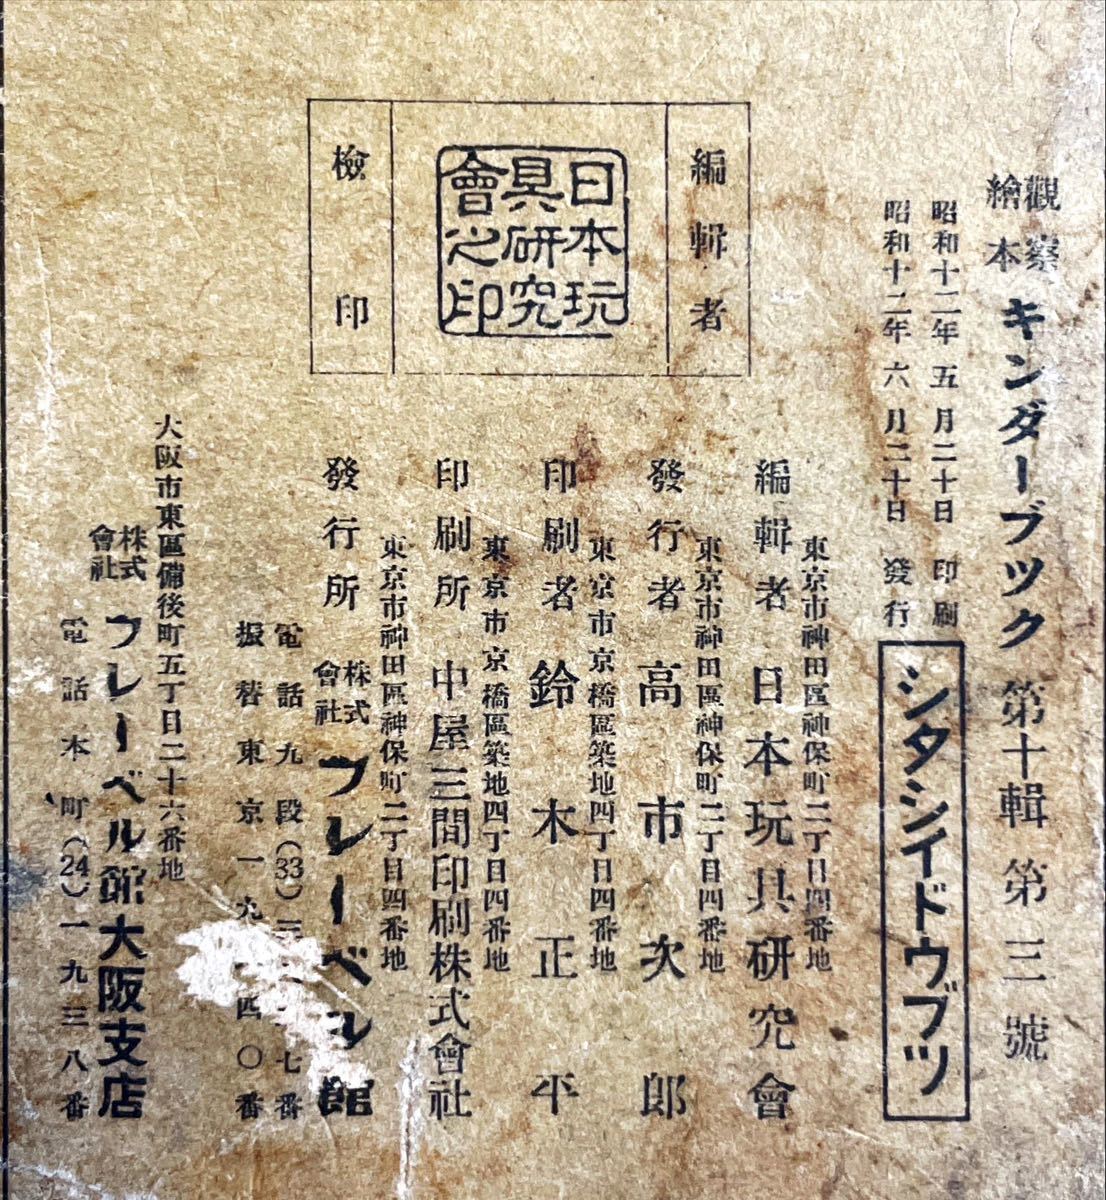 觀察繪本 キンダーブック 第十輯 第三號
昭和十二年五月二十日 印刷
昭和十二年六月二十日 發行
シタシイドウブツ
編輯者
日本玩具研究會之印
檢印
東京市神田區神保町二丁目四番地
編輯者 日本玩具研究會
東京市神田區神保町二丁目四番地
發行者 高市次郎
東京市京橋區築地四丁目四番地
印刷者 鈴木正平
東京市京橋區築地四丁目四番地
印刷所 中屋三間印刷株式會社
東京市神田區神保町二丁目四番地
發行所 株式會社 フレーベル館
電話九段(33)三 七番
振替東京一九 四〇番
大阪市東區備後町五丁目二十六番地
株式會社 フレーベル館大阪支店
電話本町(24)一九三八番